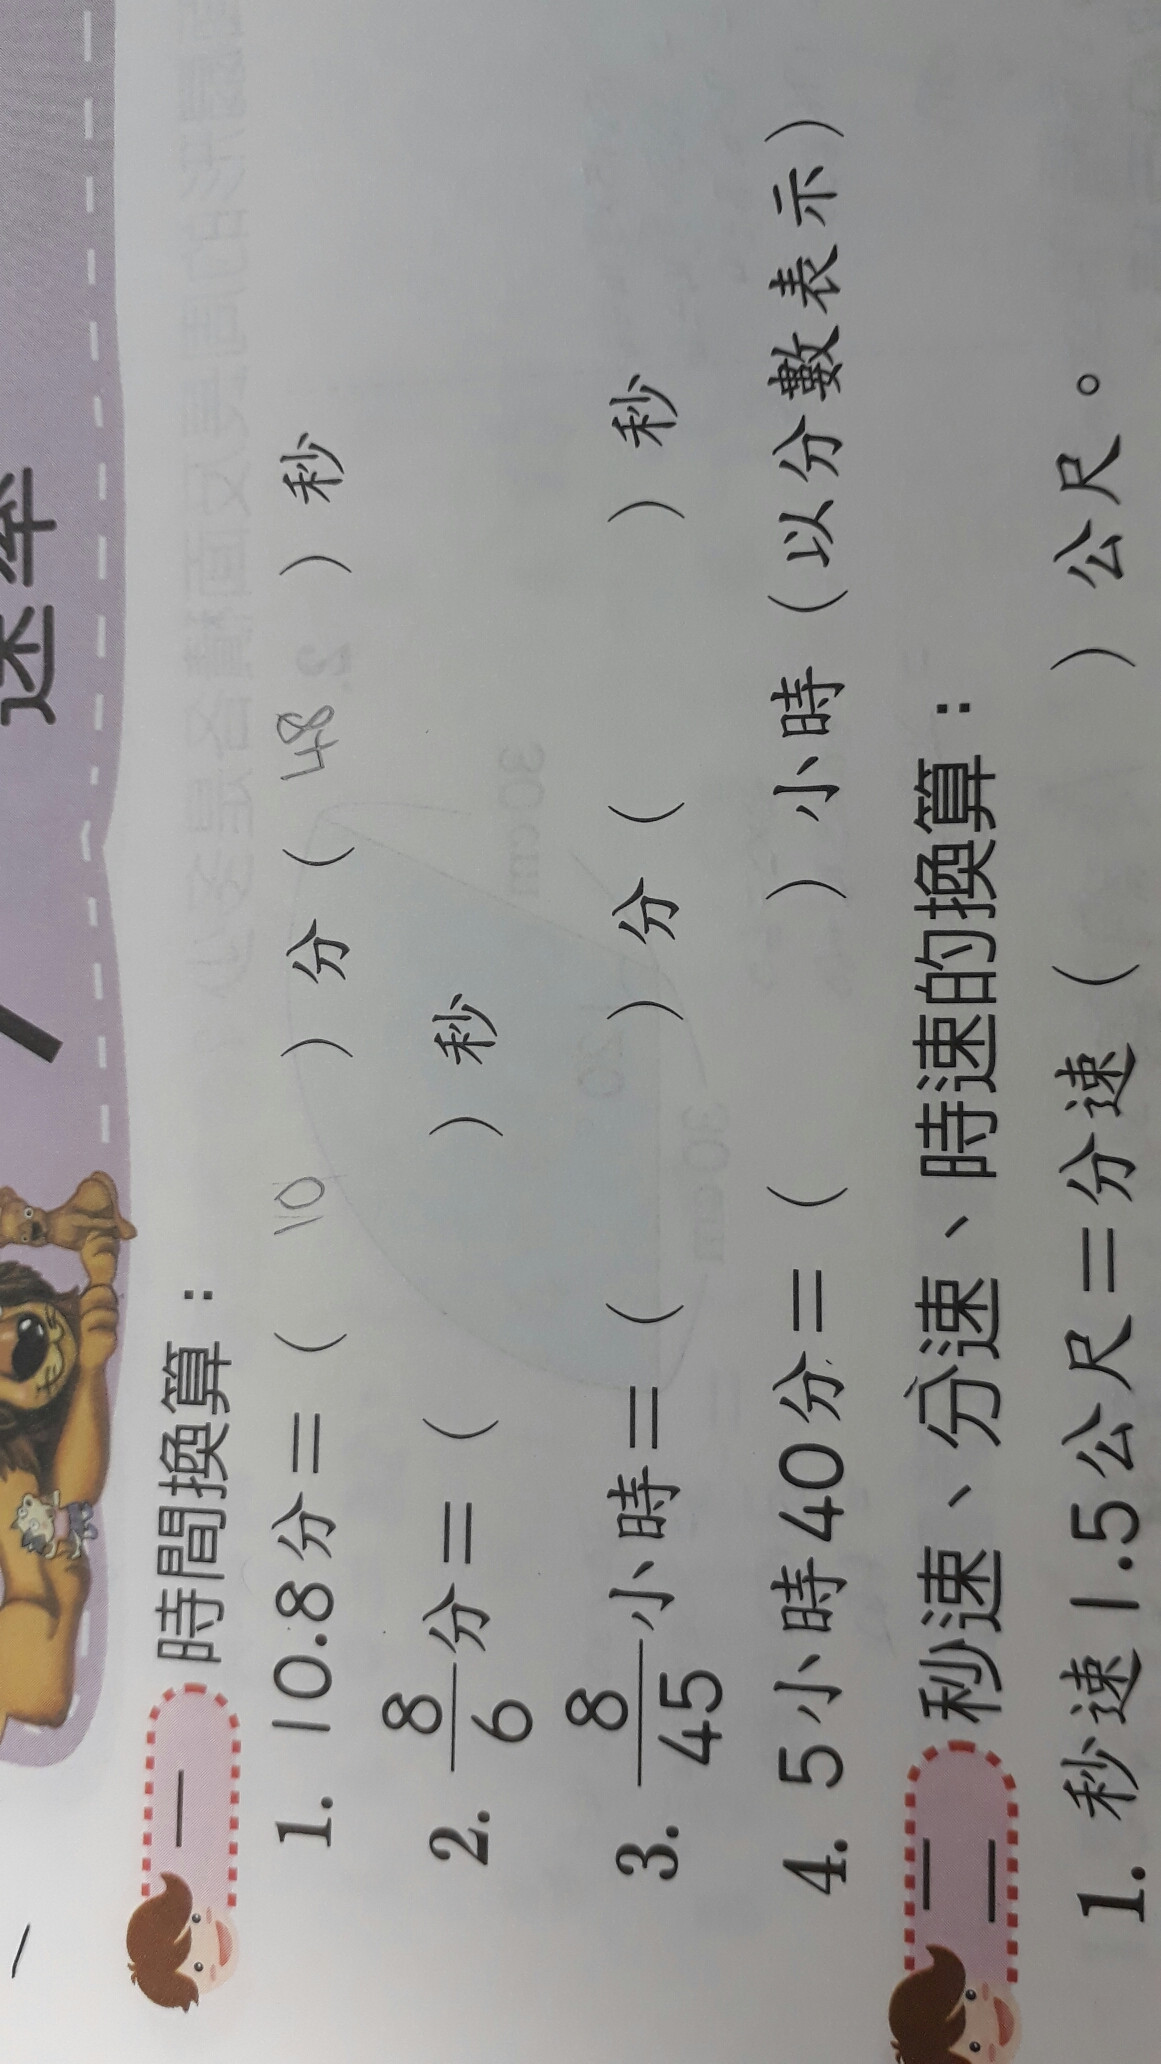 速率
一 時間換算：
1. 10.8分＝（ 10 ）分（ 48 ）秒
2. 8/6分＝（ ）秒
3. 8/45小時＝（ ）分（ ）秒
4. 5小時40分＝（ ）小時（以分數表示）
二 秒速、分速、時速的換算：
1. 秒速1.5公尺＝分速（ ）公尺。